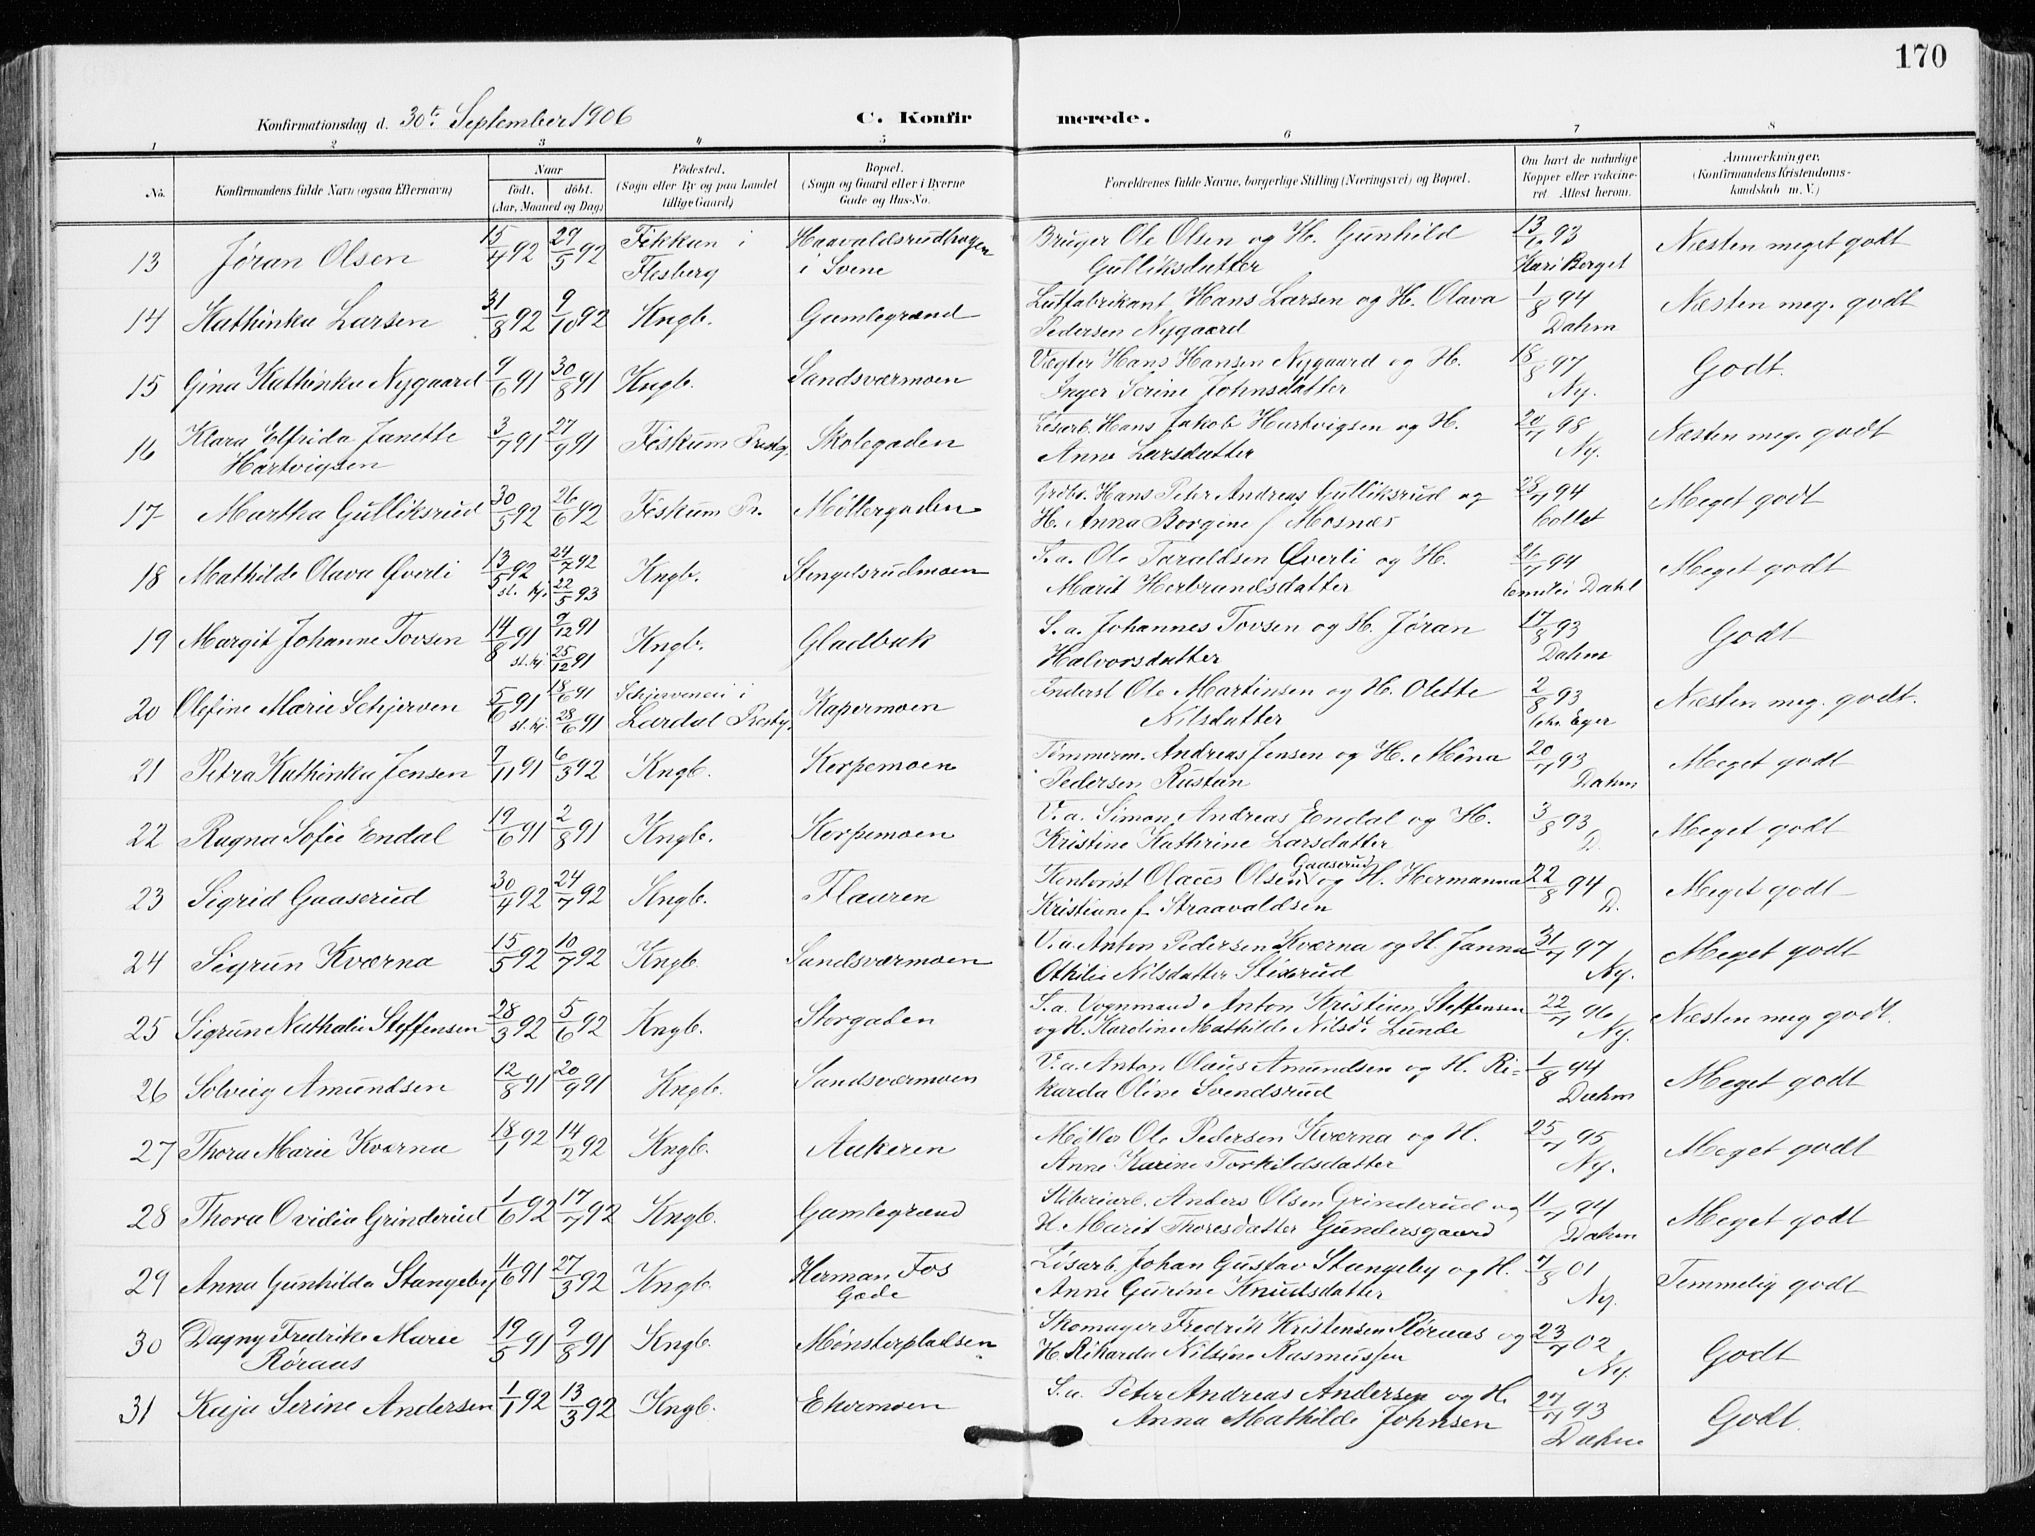 170
Konfirmationsdag d. 30te September 1906 C. Konfirmerede.
1 2 3 4 5 6 7 8
No. Konfirmandens fulde Navn (ogsaa Efternavn) Naar født. døbt. (Aar, Maaned og Dag) Fødested. (Sogn eller By og paa Landet tillige Gaard) Bopæl. (Sogn og Gaard eller i Byerne Gade og Hus-No. Forældrenes fulde Navne, borgerlige Stilling (Næringsvei) og Bopæl. Om havt de naturlige Kopper eller vakcineret. Attest herom. Anmerkninger. (Konfirmandens Kristendomskundskab m. V.)
13 Jøran Olsen 15/4 92 29/5 92 i Flesberg Haavaldsrudhagen i Svene Bruger Ole Olsen og H. Gunhild Gulliksdatter 93 Kari Berget Næsten meget godt
14 Kathinka Larsen 31/8 92 9/10 92 Kngb. Gamlegrænd Lutfabrikant Hans Larsen og H. Olava Pedersen Nygaard 1/8 94 Dahm Næsten meg. godt
15 Gina Kathinka Nygaard 9/6 91 30/8 91 Kngb. Sandsværmoen Vægter Hans Hansen Nygaard og H. Inger Serine Johnsdatter 18/8 97 Ny. Godt.
16 Klara Elfrida Janette Hartvigsen 3/7 91 27/9 91 Fiskum Prestg. Skolegaden Løsarb. Hans Jakob Hartvigsen og H. Anne Larsdatter 20/7 98 Ny. Næsten meg. godt
17 Martha Gulliksrud 30/5 92 26/6 92 Fiskum Pr. Møllergaden Hans Peter Andreas Gulliksrud og H. Anna Borgine f. Mosnæs 23/7 94 Collet Meget godt
18 Mathilde Olava Øverli 13/5 92 24/7 92 st. kj. 22/5 93 Kngb. Stengelsrudmoen S.a. Ole Taraldsen Øverli og H. Marit Herbrandsdatter 26/7 94 Emilie Dahl Meget godt
19 Margit Johanne Tovsen 14/8 91 9/12 91 st. kj 25/12 91 Kngb. Gladbak S.a. Johannes Tovsen og H. Jøran Halvorsdatter 17/8 93 Dahm Godt
20 Olefine Marie Schjerven 5/6 91 18/6 91 st. kj. 28/6 91 i Lardal Prestg. Kapermoen Inderst Ole Martinsen og H. Olette Nilsdatter 2/8 93 Eger Næsten meg. godt.
21 Petra Kathinka Jensen 7/11 91 6/3 92 Kngb. Korpemoen Tømmerm. Andreas Jensen og H. Mina Pedersen Rustan 20/7 93 Dahm Meget godt
22 Ragna Sofie Endal 19/6 91 2/8 91 Kngb. Korpemoen V.a. Simon Andreas Endal og H. Kristine Kathrine Larsdatter 3/8 93 D. Meget godt
23 Sigrid Gaaserud 30/4 92 24/7 92 Kngb. Flauren Kontorist Olaus Olsen Gaaserud og H. Hermanna Kristiane f. Straavaldsen 22/8 94 D. Meget godt
24 Sigrun Kværna 15/5 92 10/7 92 Kngb. Sandsværmoen V.a. Anton Pedersen Kværna og H. Janna Othilie Nilsdatter Stixrud 31/7 97 Ny. Meget godt
25 Sigrun Nathalie Steffensen 28/3 92 5/6 92 Kngb. Storgaden S.a. Vognmand Anton Kristian Steffensen og H. Karoline Mathilde Nilsd. Lunde 22/7 96 Ny. Næsten meg godt.
26 Solveig Amundsen 12/8 91 20/9 91 Kngb. Sandsværmoen V.a. Anton Olaus Amundsen og H. Rikarda Oline Svendsrud 1/8 94 Dahm Meget godt
27 Thora Marie Kværna 18/1 92 14/2 92 Kngb. Aakeren Møller Ole Pedersen Kværna og H. Anne Karine Torkildsdatter 25/7 95 Ny. Meget godt
28 Thora Ovidia Grinderud 1/6 92 17/7 92 Kngb. Gamlegrænd Stiberiarb. Anders Olsen Grinderud og H. Marit Thoresdatter Gundersgaard 11/7 94 Dahm Meget godt
29 Anna Gunhilda Stangeby 11/6 91 27/3 92 Kngb. Herman Fos Gade Løsarb. Johan Gustav Stangeby og H. Anne Gurine Knudsdatter 7/8 01 Ny. Temmelig godt
30 Dagny Fredrike Marie Røraas 19/5 91 9/8 91 Kngb. Mønsterpladsen Skomager Fredrik Kristensen Røraas og H. Rikarda Nilsine Rasmussen 23/7 02 Ny. Godt
31 Kaja Serine Andersen 1/1 92 13/3 92 Kngb. Ekermoen S.a. Peter Andreas Andersen og H. Anna Mathilde Johnsen 27/7 93 Dahm Godt.